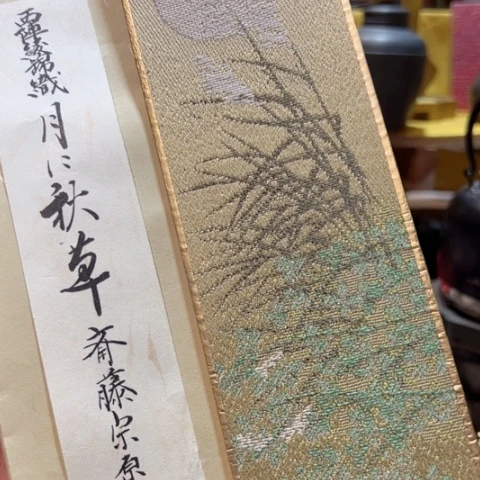 西陣綴錦織 月に秋草 斎藤宗